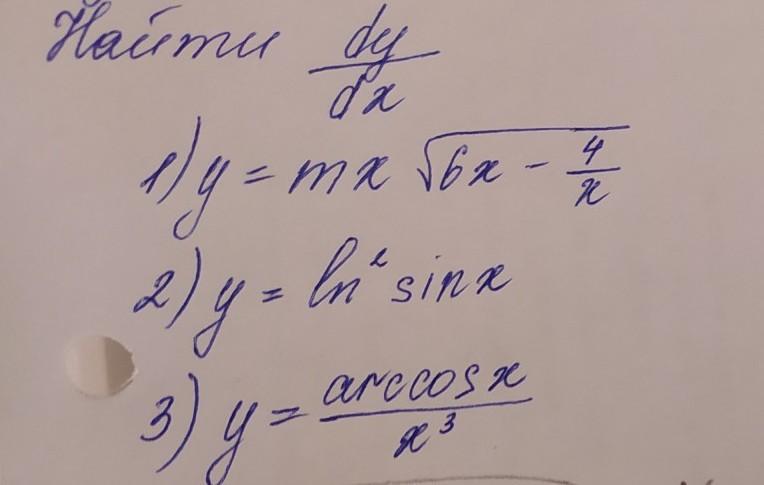 Найти dy/dx
1) y = mx √(6x - 4/x)
2) y = ln² sinx
3) y = arccosx/x³